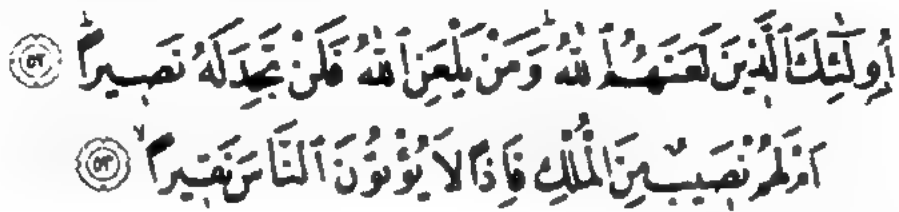 أُولَٰئِكَ الَّذِينَ لَعَنَهُمُ اللهُ وَمَنْ يَلْعَنِ اللهُ فَلَنْ تَجِدَ لَهُ نَصِيرًا ﴿٥٢﴾
اَمْ لَهُمْ نَصِيبٌ مِنَ الْمُلْكِ فَاِذًا لَا يُؤْتُونَ النَّاسَ نَقِيرًا ﴿٥٣﴾